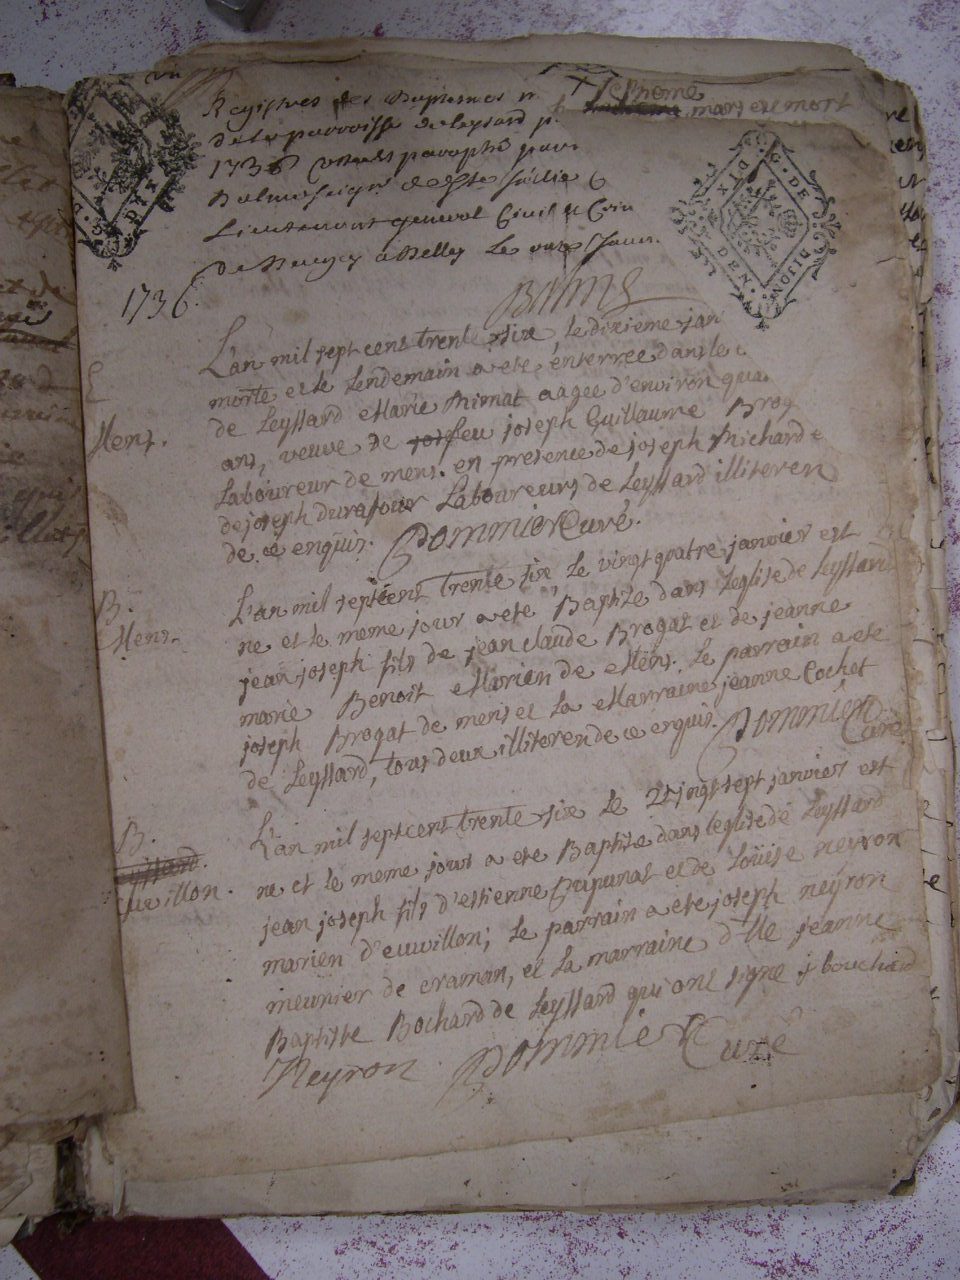 Registres des Baptemes
de la parroisse de leyssard p
1736 cottes paraphé par
Balme seigr de Ste Jullie
Lieutenant general Civil & Crim
de Beugey a Belley Le Janv.
Balme
+ le 8neme
mary est mort
G. DE DIJON
DIX DEN.
1736.
E
Mens.
L'an mil sept cens trente six, le dixieme jan
morte et le lendemain a ete enterrée dans le c
de Leyssard Marie thimat aagee d'environ qua
ans, veuve de feu joseph Guillaume Brog
Laboureur de mens. en presence de joseph Michard e
de joseph durafour Laboureurs de Leyssard illiteren
de ce enquis. Dommier Curé.
B.
Mens.
L'an mil septcent trente six, Le vingt quatre janvier est
ne et le meme jour a ete Baptize dans Leglise de Leyssard
jean joseph fils de jean claude Brogat et de jeanne
marie Benoit Mariez de Mens. Le parrain a ete
joseph Brogat de mens et La Marraine jeanne Cochet
de Leyssard, tous deux illiteren de ce enquis. Dommier
Curé
B.
Leyssard.
Cuvillon.
L'an mil septcent trente six Le vingt sept janvier est
ne et le meme jour a ete Baptize dans leglise de Leyssard
jean joseph fils d'estienne Pupunat et de Loüise neyron
mariez d'euvillon; Le parrain a ete joseph neyron
meunier de craman, et La marraine d'lle jeanne
Baptiste Bochard de Leyssard qui ont signe j bouchard
Neyron Dommier Curé